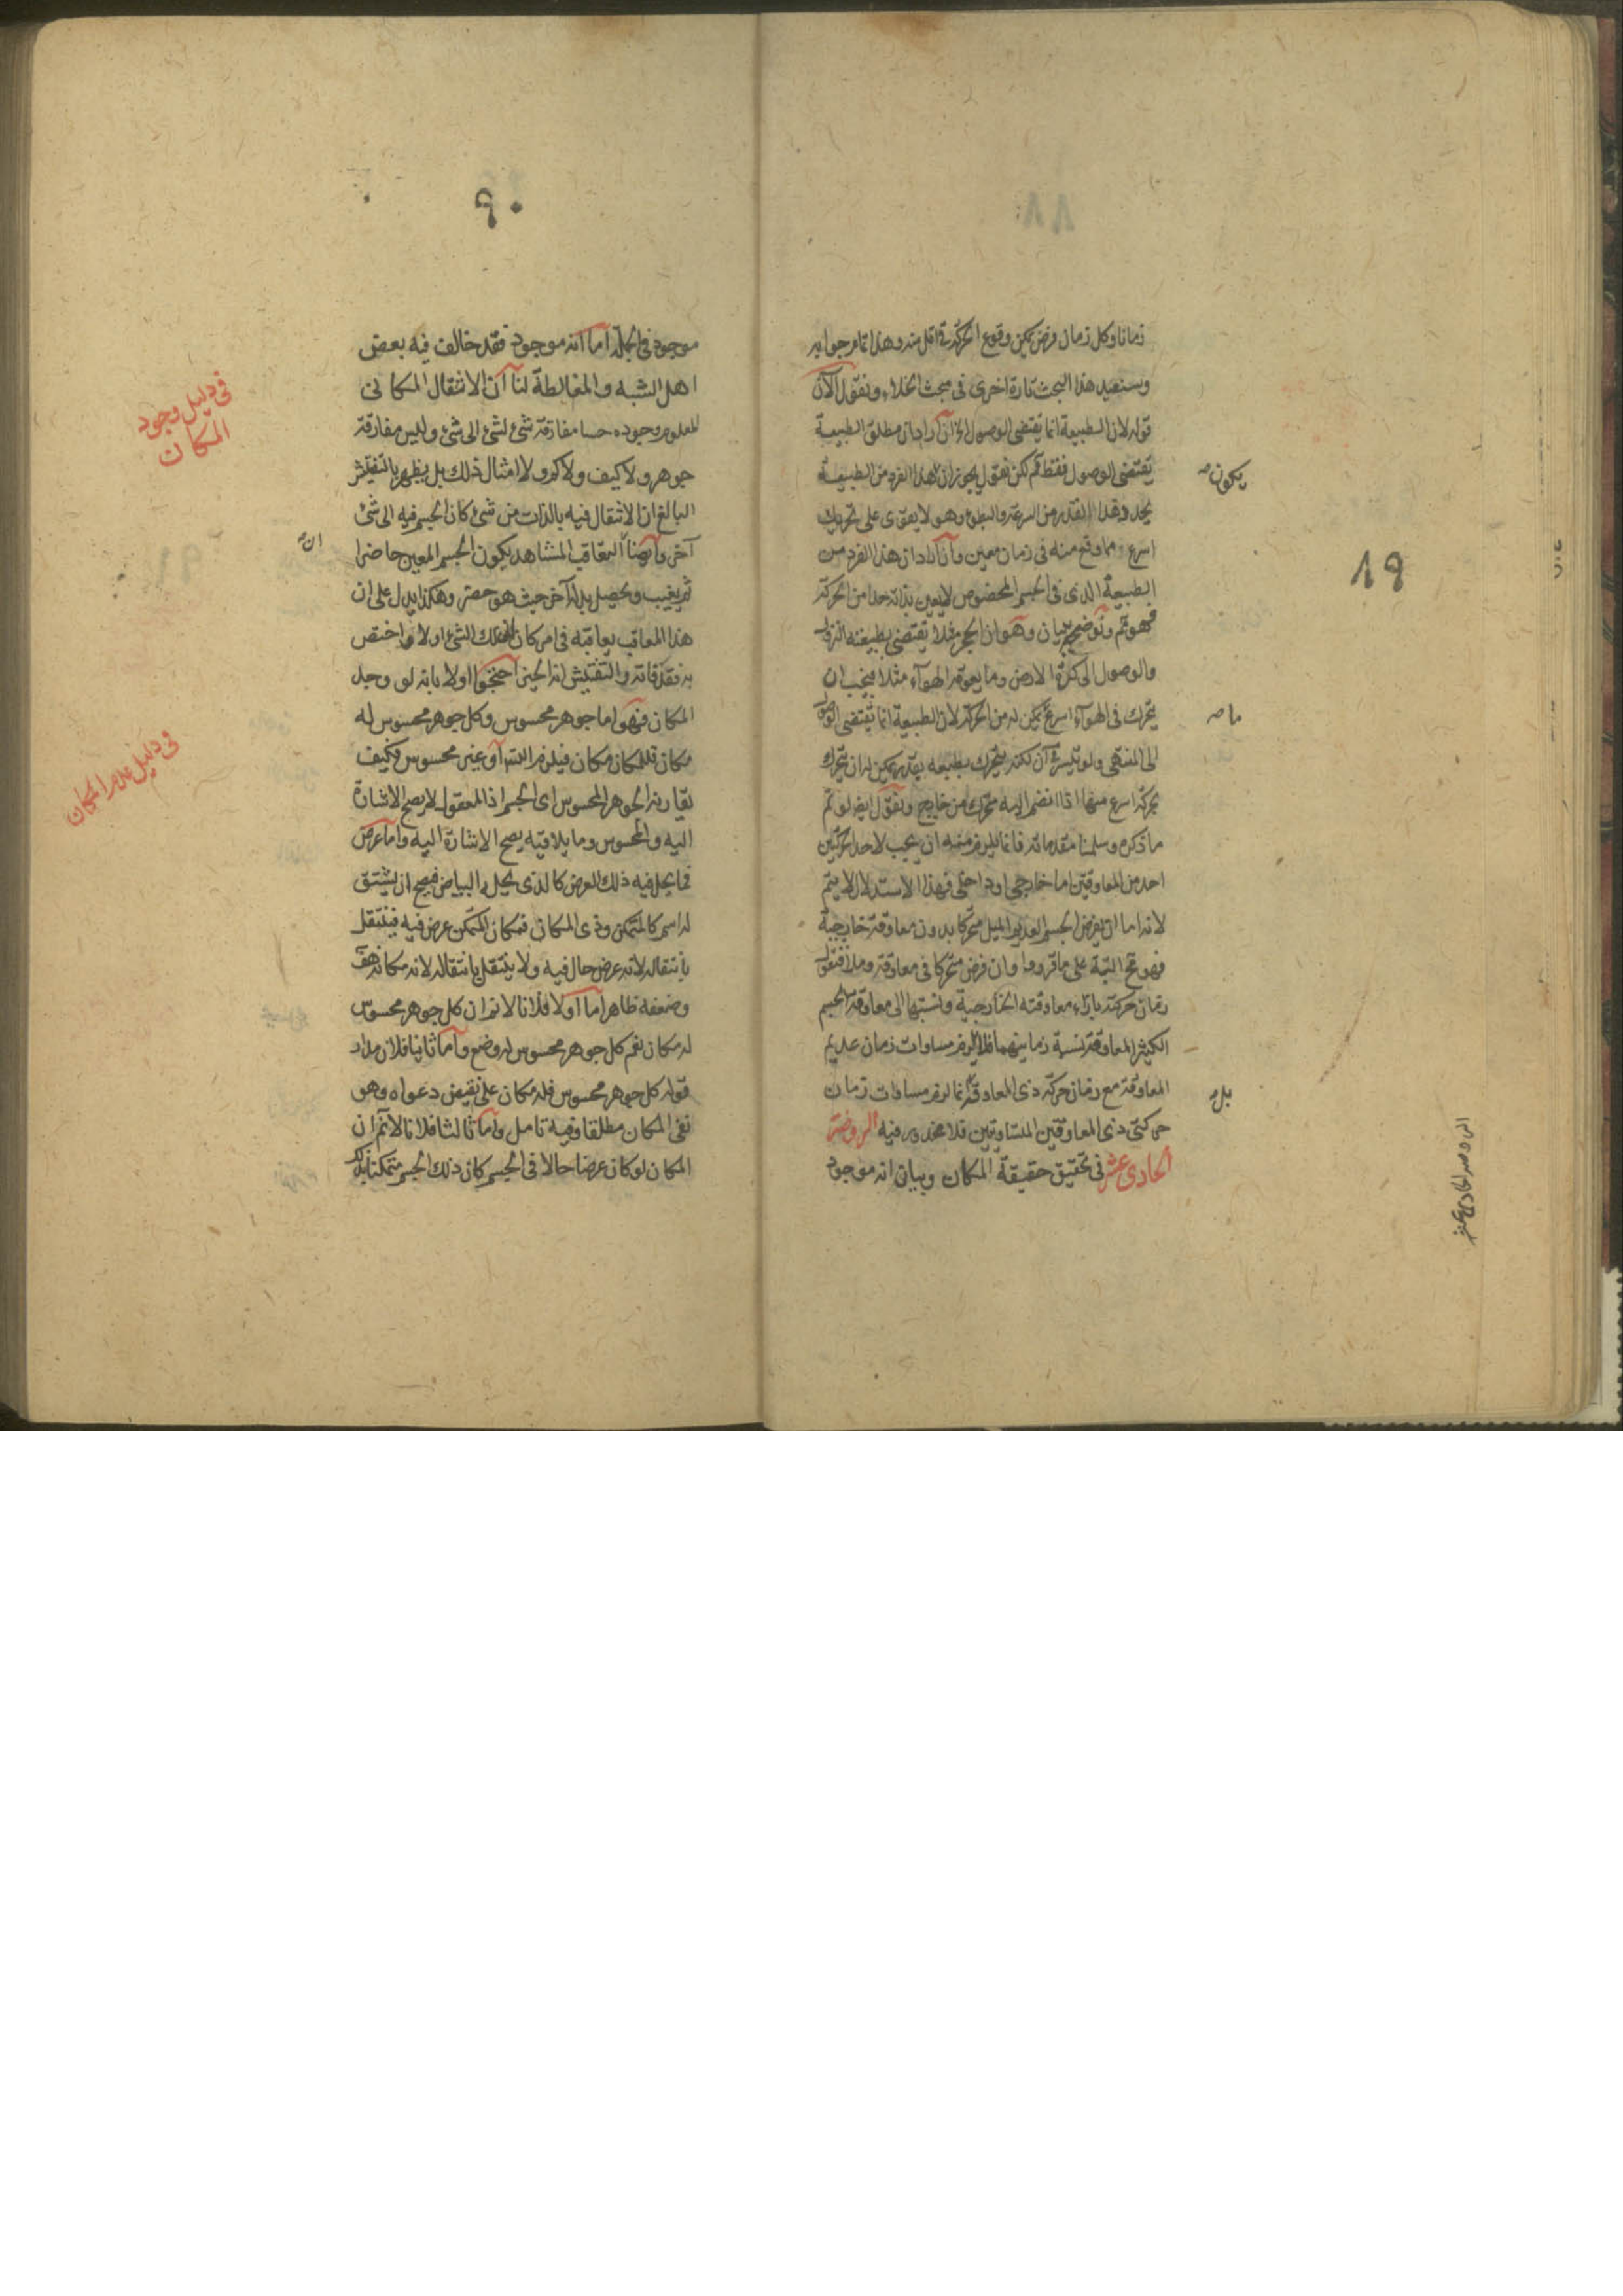 زمانا وكل زمان فرض يمكن وقوع الحركة في اقل منه وهذا تمام جوابه
وسنعيد هذا البحث تارة اخرى في مبحث الخلاء ونقول الآن
قوله لان الطبيعة انما يقتضي الوصول الخ ان اراد ان مطلق الطبيعة
تقتضي الوصول فقط فم لكن نقول يجوز ان لهذا الفرد من الطبيعة
يكون صه
يحد وهذا القدر من السرعة والبطوء وهو لا يقوى على تحريك
اسرع مما وقع منه في زمان معين وان اراد ان هذا الفرد من
١٩
الطبيعة الذي في الجسم المخصوص لا يعين بذاته حدا من الحركة
فهو تم وتوضيحه ببيان وهو ان الحجر مثلا يقتضي بطبيعته النزول
والوصول الى كرة الارض وما يعوقه الهوآء مثلا فيجب ان
يتحرك في الهوآء اسرع يمكن له من الحركة لان الطبيعة انما تقتضي الوصول
ما صه
الى المنتهى ولو تيسر في آن لكنه يتحرك بطبيعه بقدر يمكن له ان يتحرك
بحركة اسرع منها اذا انضم اليه محرك من خارج ونقول ايضا لو تم
ما ذكره وسلمنا مقدماته فانما يلزم منه ان يجب لاحد الحركتين
احد من المعاوقين اما خارجي او داخلي فهذا الاستدلال لا يتم
لانه اما ان يفرض الجسم العديم الميل متحركا بدون معاوقة خارجية
فهو مح البتة على ما قرروا وان فرض متحركا في معاوقة وملأ فنقول
زمان حركته بازاء معاوقته الخارجية ونسبتها الى معاوقة الجسم
الكثير المعاوقة نسبة زمانيهما فلا يلزم مساوات زمان عديم
المعاوقة مع زمان حركة ذي المعاوقة انما لزم مساوات زمان
بل صه
حركتي ذي المعاوقين المتساويين فلا محذور فيه الروضة
الحادي عشر في تحقيق حقيقة المكان وبيان انه موجود
الروضه الحادي عشر
٩٠
موجود في الجملة اما انه موجود فقد خالف فيه بعض
اهل الشبه والمغالطة لنا ان الانتقال المكاني
في دليل وجود
المكان
المعلوم وجوده حسا مفارقة شئ لشئ الى شئ وليس مفارقة
جوهر ولا كيف ولا كم ولا امثال ذلك بل يظهر بالتفتيش
البالغ ان الانتقال فيه بالذات من شئ كان الجسم فيه الى شئ
آخر وايضا التعاقب المشاهد يكون الجسم المعين حاضرا
ان صه
ثم يغيب ويحصل بدله آخر حيث هو حضر وهكذا يدل على ان
هذا المعاقب يعاقبه في امر كان لذلك الشئ اولا واختص
به فقد فاته والتفتيش انه الحيز احتجوا اولا بانه لو وجد
المكان فهو اما جوهر محسوس وكل جوهر محسوس له
مكان فللمكان مكان فيلزم التس او غير محسوس فكيف
في دليل عدم المكان
يقارنه الجوهر المحسوس اى الجسم اذ المعقول لا يصح الاشارة
اليه والمحسوس وما يلاقيه يصح الاشارة اليه واما عرض
فما يحل فيه ذلك العرض كالذي يحل به البياض فيصح ان يشتق
له اسم كالمتمكن وذي المكان فمكان المتمكن عرض فيه فينتقل
بانتقاله لانه عرض حال فيه ولا ينتقل بانتقاله لانه مكانه هف
وضعفه ظاهر اما اولا فلانا لانم ان كل جوهر محسوس
له مكان نعم كل جوهر محسوس له وضع واما ثانيا فلان مدار
قوله كل جوهر محسوس فله مكان على نقيض دعواه وهو
نفي المكان مطلقا وفيه تامل واما ثالثا فلانا لانم ان
المكان لو كان عرضا حالا في الجسم كان ذلك الجسم متمكنا بذلك